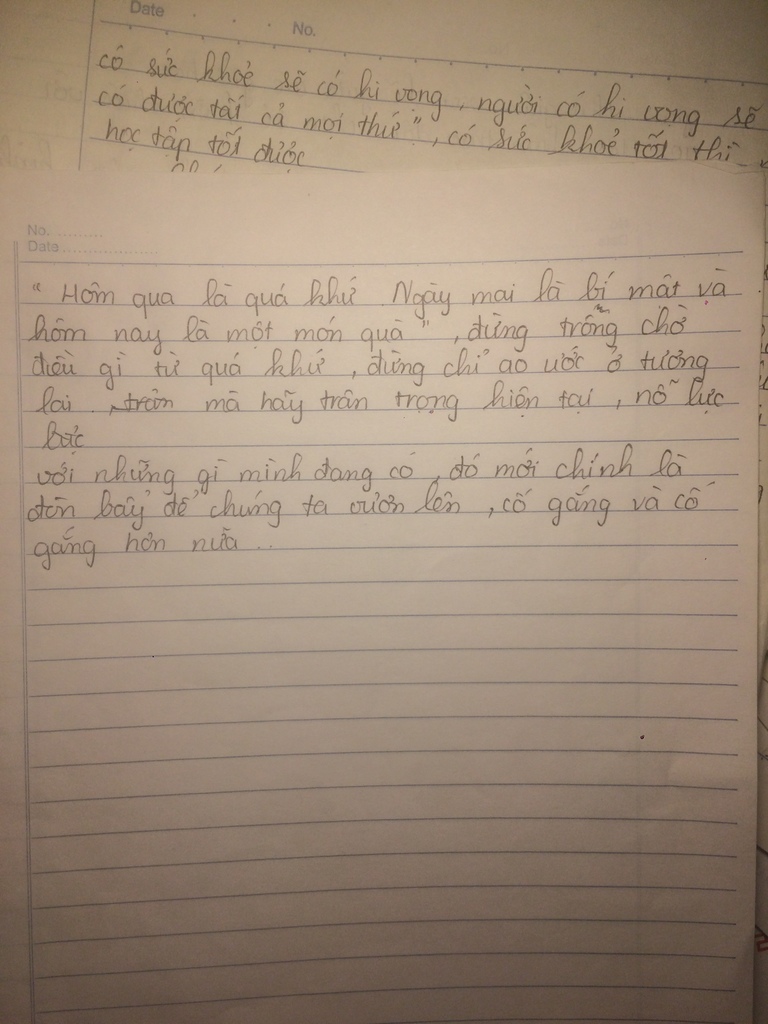 Date
No.
có sức khoẻ sẽ có hi vọng, người có hi vọng sẽ
có được tất cả mọi thứ", có sức khoẻ tốt thì
học tập tốt được
No.
Date
"Hôm qua là quá khứ. Ngày mai là bí mật và
hôm nay là một món quà", đừng trông chờ
điều gì từ quá khứ, đừng chỉ ao ước ở tương
lai, trân mà hãy trân trọng hiện tại, nỗ lực
lực
với những gì mình đang có, đó mới chính là
đòn bẩy để chúng ta vươn lên, cố gắng và cố
gắng hơn nữa..